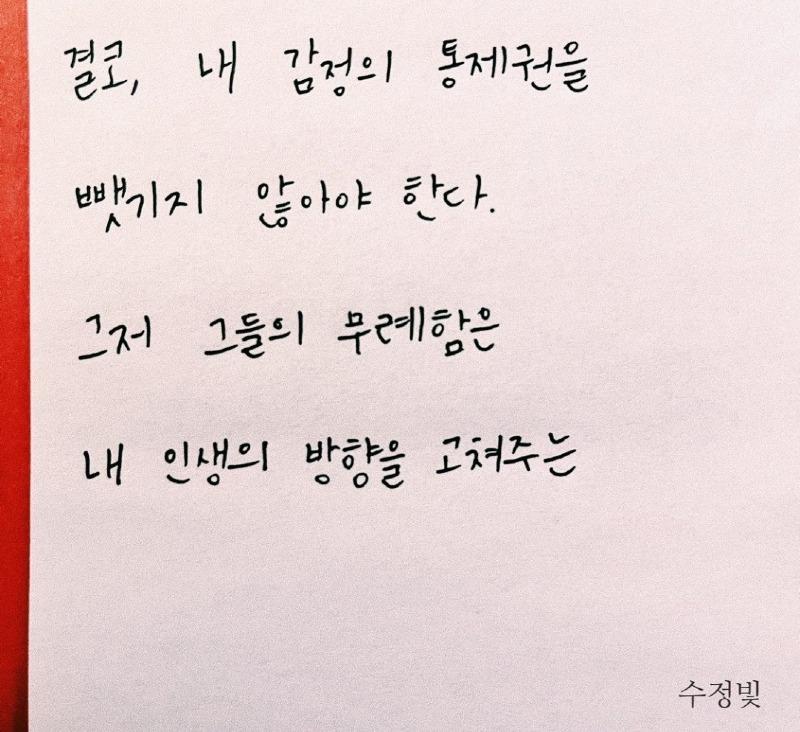 결코, 내 감정의 통제권을
뺏기지 않아야 한다.
그저 그들의 무례함은
내 인생의 방향을 고쳐주는
수정빛